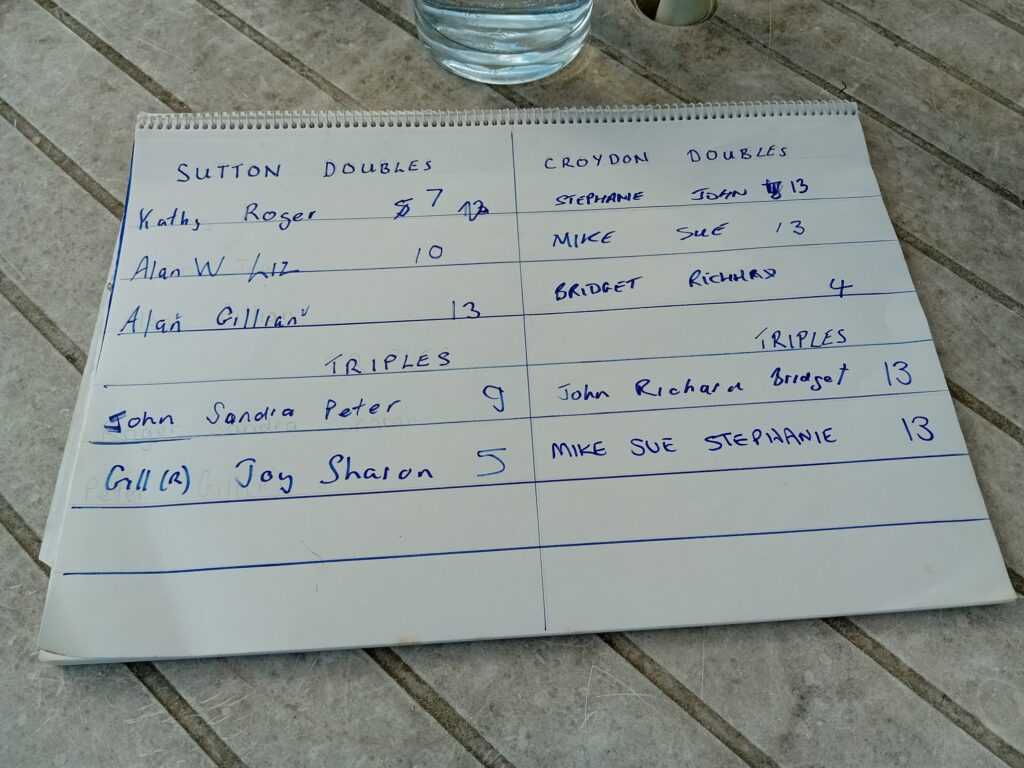 SUTTON DOUBLES
Kathy Roger 7
Alan W Liz 10
Alan Gillian 13
TRIPLES
John Sandra Peter 9
Gill (R) Joy Sharon 5
CROYDON DOUBLES
STEPHANIE JOHN 13
MIKE SUE 13
BRIDGET RICHARD 4
TRIPLES
John Richard Bridget 13
MIKE SUE STEPHANIE 13